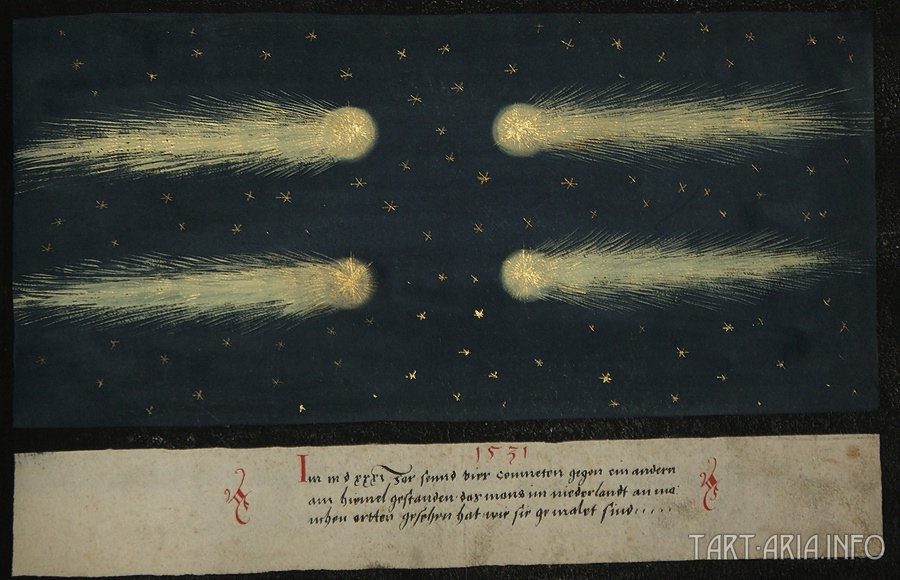 1531
Im m d xxxı Jar seind vier commeten gegen ein andern
am himel gestanden das mans im niederlandt an ma:
nichen ortten gesehen hat wie sie gemalet sind.....
TART-ARIA.INFO